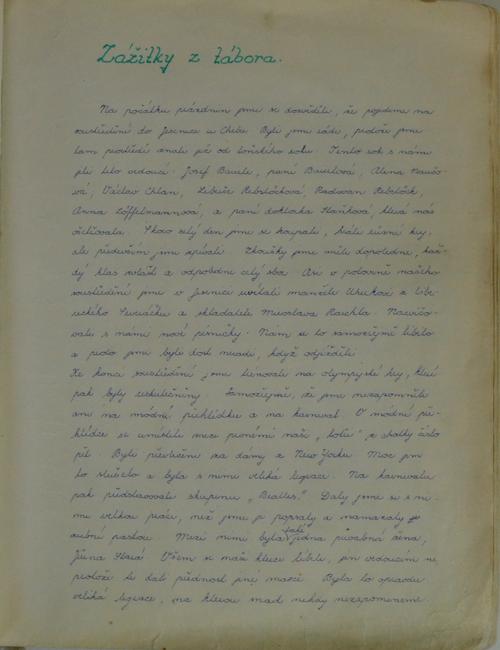 Zážitky z tábora.
Na počátku prázdnin jsme se dozvěděli, že pojedeme na
soustředění do Jesenice u Chebu. Byli jsme rádi, protože jsme
tam prostředí znali již od loňského roku. Tento rok s námi
jeli tito vedoucí: Josef Baierle, paní Baierlová, Alena
Václav Chlan, Libuše Rebstöcková, Radovan Rebstöck,
Anna Löffelmannová, a paní doktorka Staňková, která nás
ošetřovala. Skoro celý den jsme se koupali, hráli různé hry,
ale především jsme zpívali. Zkoušky jsme měli dopoledne, kaž-
dý hlas zvlášť a odpoledne celý sbor. Asi v polovině našeho
soustředění jsme v Jesenici uvítali manžele Uherkovi z libe-
reckého Severáčku a skladatele Miroslava Raichla. Nacvičo-
vali s námi nové písničky. Nám se to samozřejmě líbilo
a proto jsme byli dost smutní, když odjížděli.
Ke konci soustředění jsme trénovali na olympijské hry, které
pak byly uskutečněny. Samozřejmě, že jsme nezapomněli
ani na módní přehlídku a na karneval. V módní pře-
hlídce se umístili mezi prvními naše z chatky číslo
pět. Byli převlečeni za dámy z New Yorku. Moc jim
to slušelo a byla s nimi veliká legrace. Na karnevalu
pak představovali skupinu „Beatles". Daly jsme si s ni-
mi velkou práci, než jsme je popsaly a namazaly je
zubní pastou. Mezi nimi byla také jedna půvabná žena,
Jiřina Stará. Všem se naši kluci líbili, jen vedoucím ne,
protože ti dali přednost jiné masce. Byla to opravdu
veliká legrace, na kterou snad nikdy nezapomeneme.